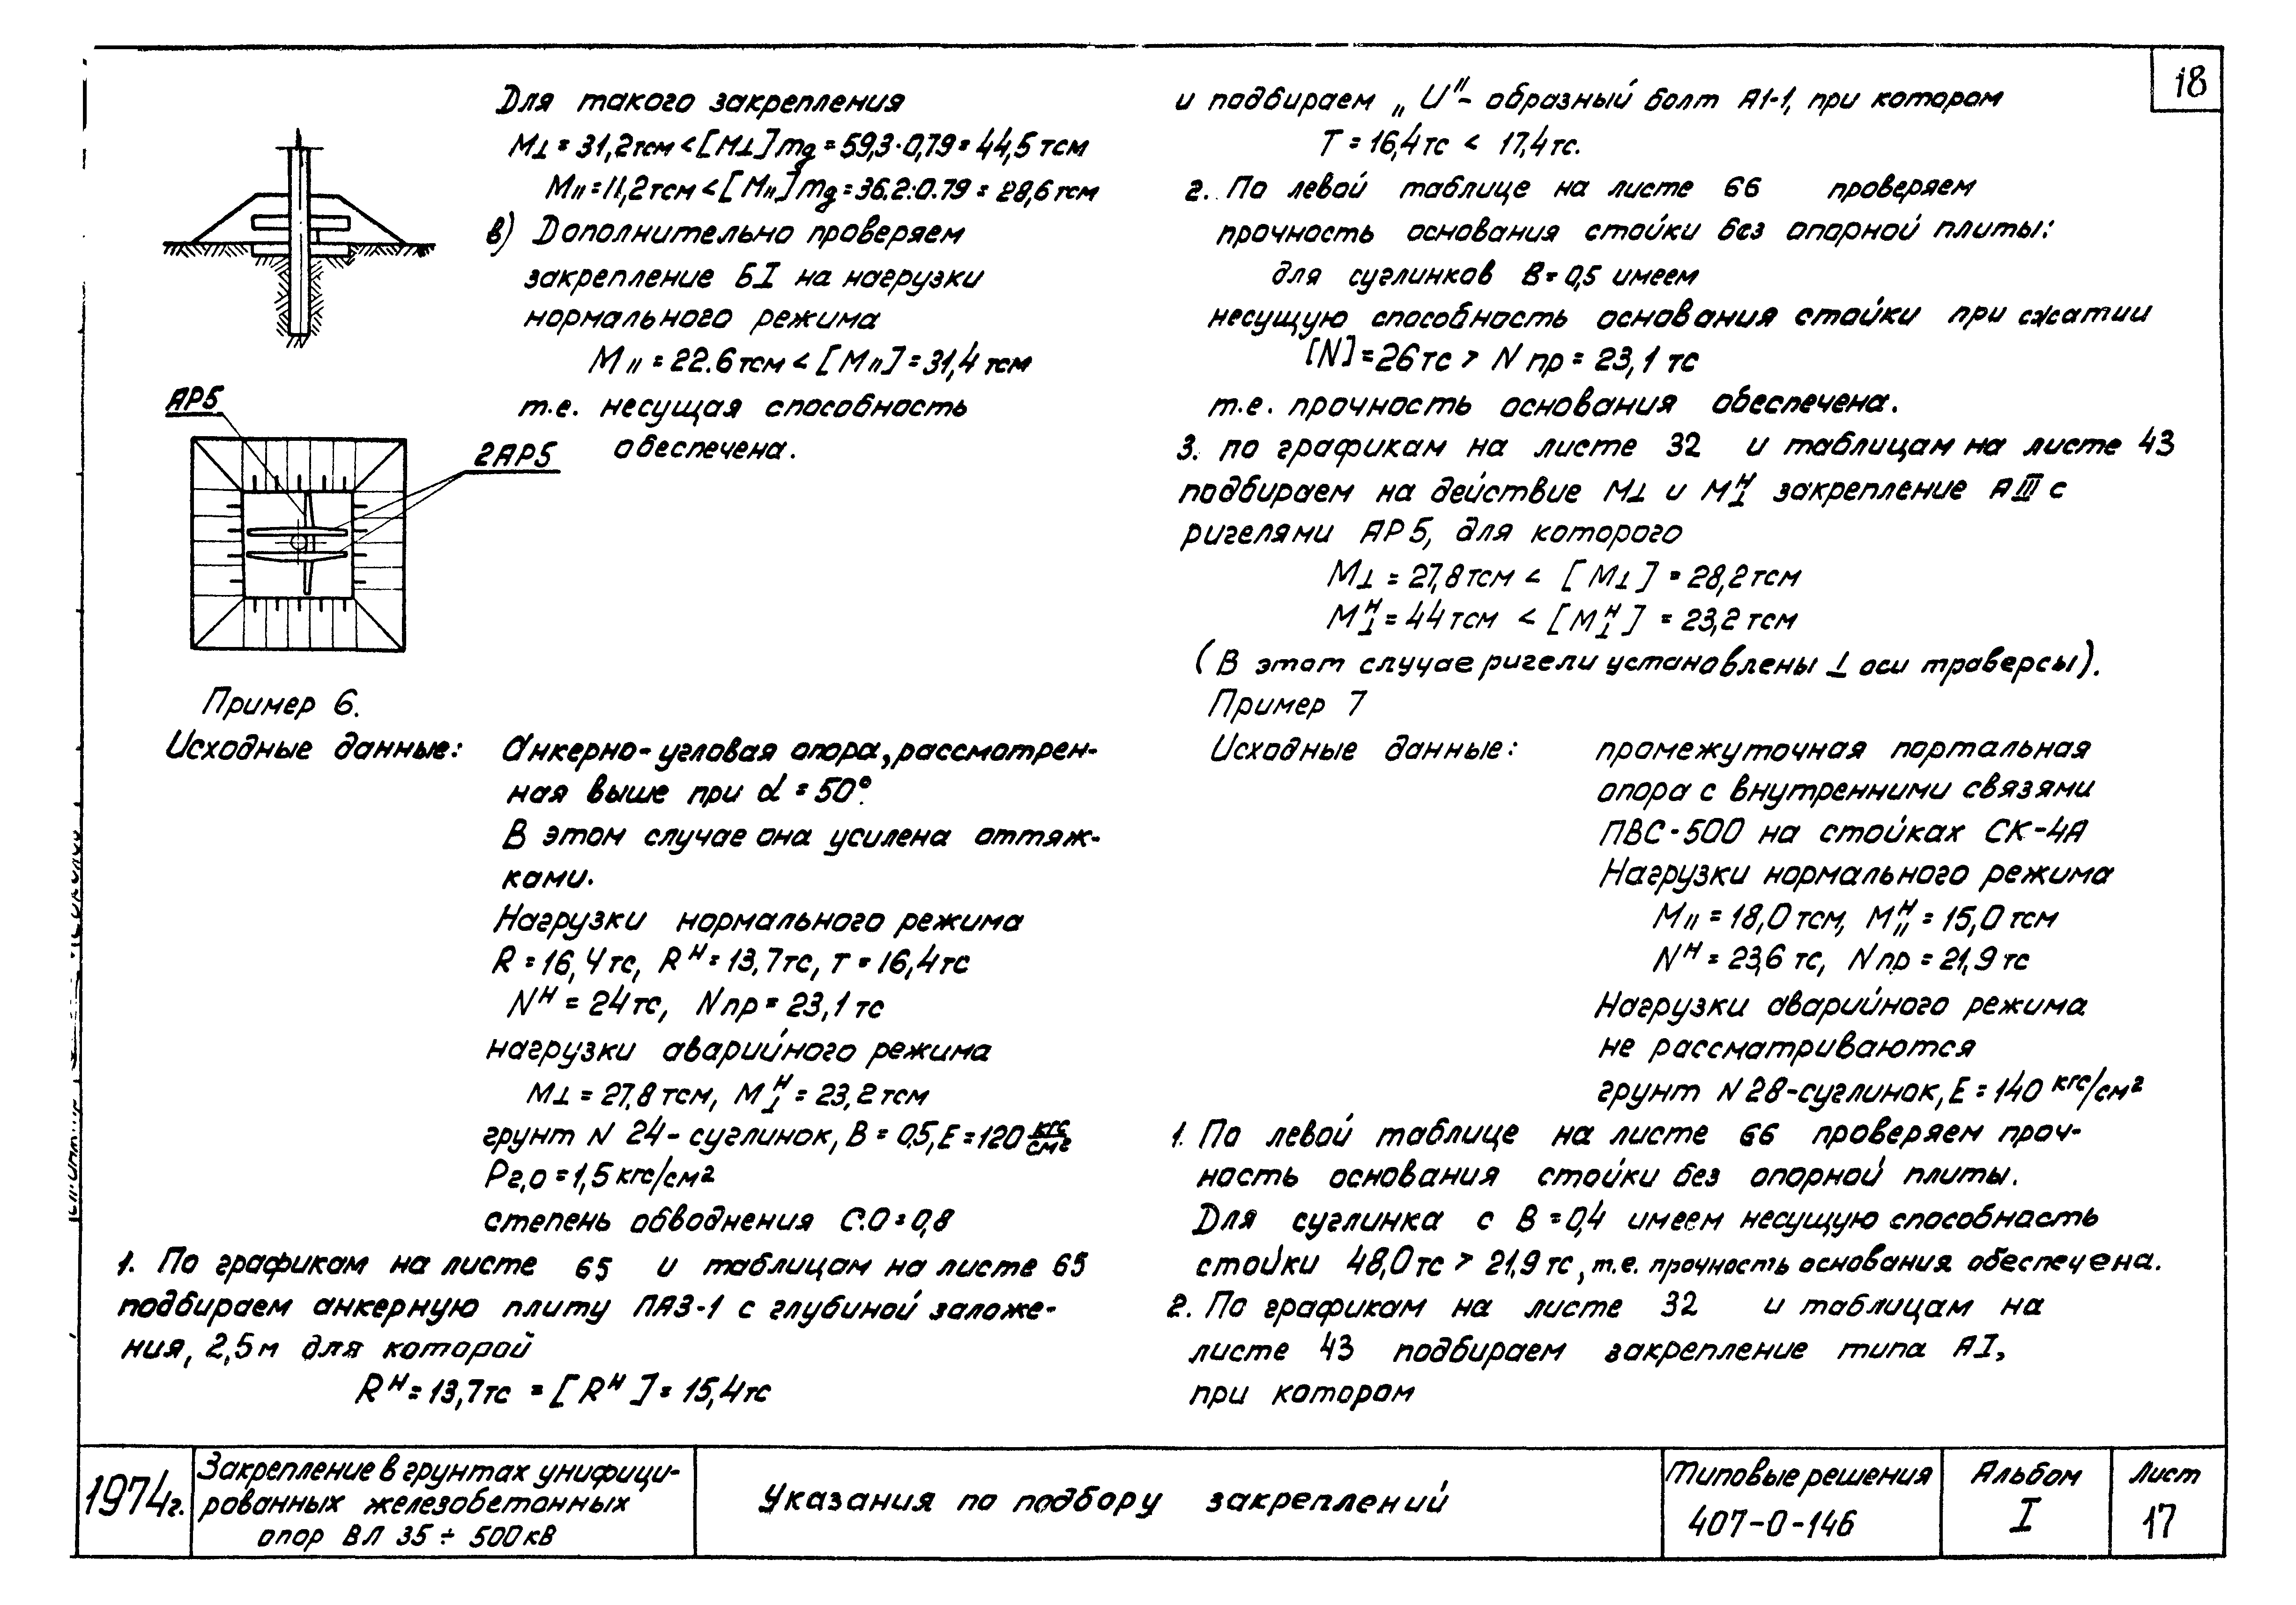 18
Для такого закрепления
M⊥ = 31,2тсм < [M⊥] mg = 59,3·0,79 = 44,5 тсм
M॥ = 11,2тсм < [M॥] mg = 36.2·0.79 = 28,6 тсм
в) Дополнительно проверяем
закрепление БI на нагрузки
нормального режима
M॥ = 22.6 тсм < [M॥] = 31,4 тсм
т.е. несущая способность
обеспечена.
АР5
2АР5
Пример 6.
Исходные данные: Анкерно-угловая опора, рассмотрен-
ная выше при α = 50°.
В этом случае она усилена оттяж-
ками.
Нагрузки нормального режима
R = 16,4 тс, Rᴴ = 13,7тс, T = 16,4тс
Nᴴ = 24тс, Nпр = 23,1 тс
нагрузки аварийного режима
M⊥ = 27,8 тсм, M⊥ᴴ = 23,2 тсм
грунт N 24 - суглинок, В = 0,5, E = 120 кгс/см²
Рг,о = 1,5 кгс/см²
степень обводнения С.О = 0,8
1. По графикам на листе 65 и таблицам на листе 65
подбираем анкерную плиту ПАЗ-1 с глубиной заложе-
ния, 2,5м для которой
Rᴴ = 13,7тс = [Rᴴ] = 15,4тс
и подбираем „U"- образный болт А1-1, при котором
T = 16,4тс < 17,4тс.
2. По левой таблице на листе 66 проверяем
прочность основания стойки без опорной плиты:
для суглинков В = 0,5 имеем
несущую способность основания стойки при сжатии
[N] = 26 тс > N пр = 23,1 тс
т.е. прочность основания обеспечена.
3. по графикам на листе 32 и таблицам на листе 43
подбираем на действие M⊥ и M⊥ᴴ закрепление АIII с
ригелями АР5, для которого
M⊥ = 27,8 тсм < [M⊥] = 28,2 тсм
M⊥ᴴ = 44 тсм < [M⊥ᴴ] = 23,2 тсм
(В этом случае ригели установлены ⊥ оси траверсы).
Пример 7
Исходные данные: промежуточная портальная
опора с внутренними связями
ПВС-500 на стойках СК-4А
Нагрузки нормального режима
M॥ = 18,0 тсм, M॥ᴴ = 15,0 тсм
Nᴴ = 23,6 тс, Nпр = 21,9 тс
Нагрузки аварийного режима
не рассматриваются
грунт N 28-суглинок, E = 140 кгс/см²
1. По левой таблице на листе 66 проверяем проч-
ность основания стойки без опорной плиты.
Для суглинка с В = 0,4 имеем несущую способность
стойки 48,0 тс > 21,9 тс, т.е. прочность основания обеспечена.
2. По графикам на листе 32 и таблицам на
листе 43 подбираем закрепление типа АI,
при котором
1974г.
Закрепление в грунтах унифици-
рованных железобетонных
опор ВЛ 35 ÷ 500 кВ
Указания по подбору закреплений
Типовые решения
407-0-146
Альбом
I
Лист
17